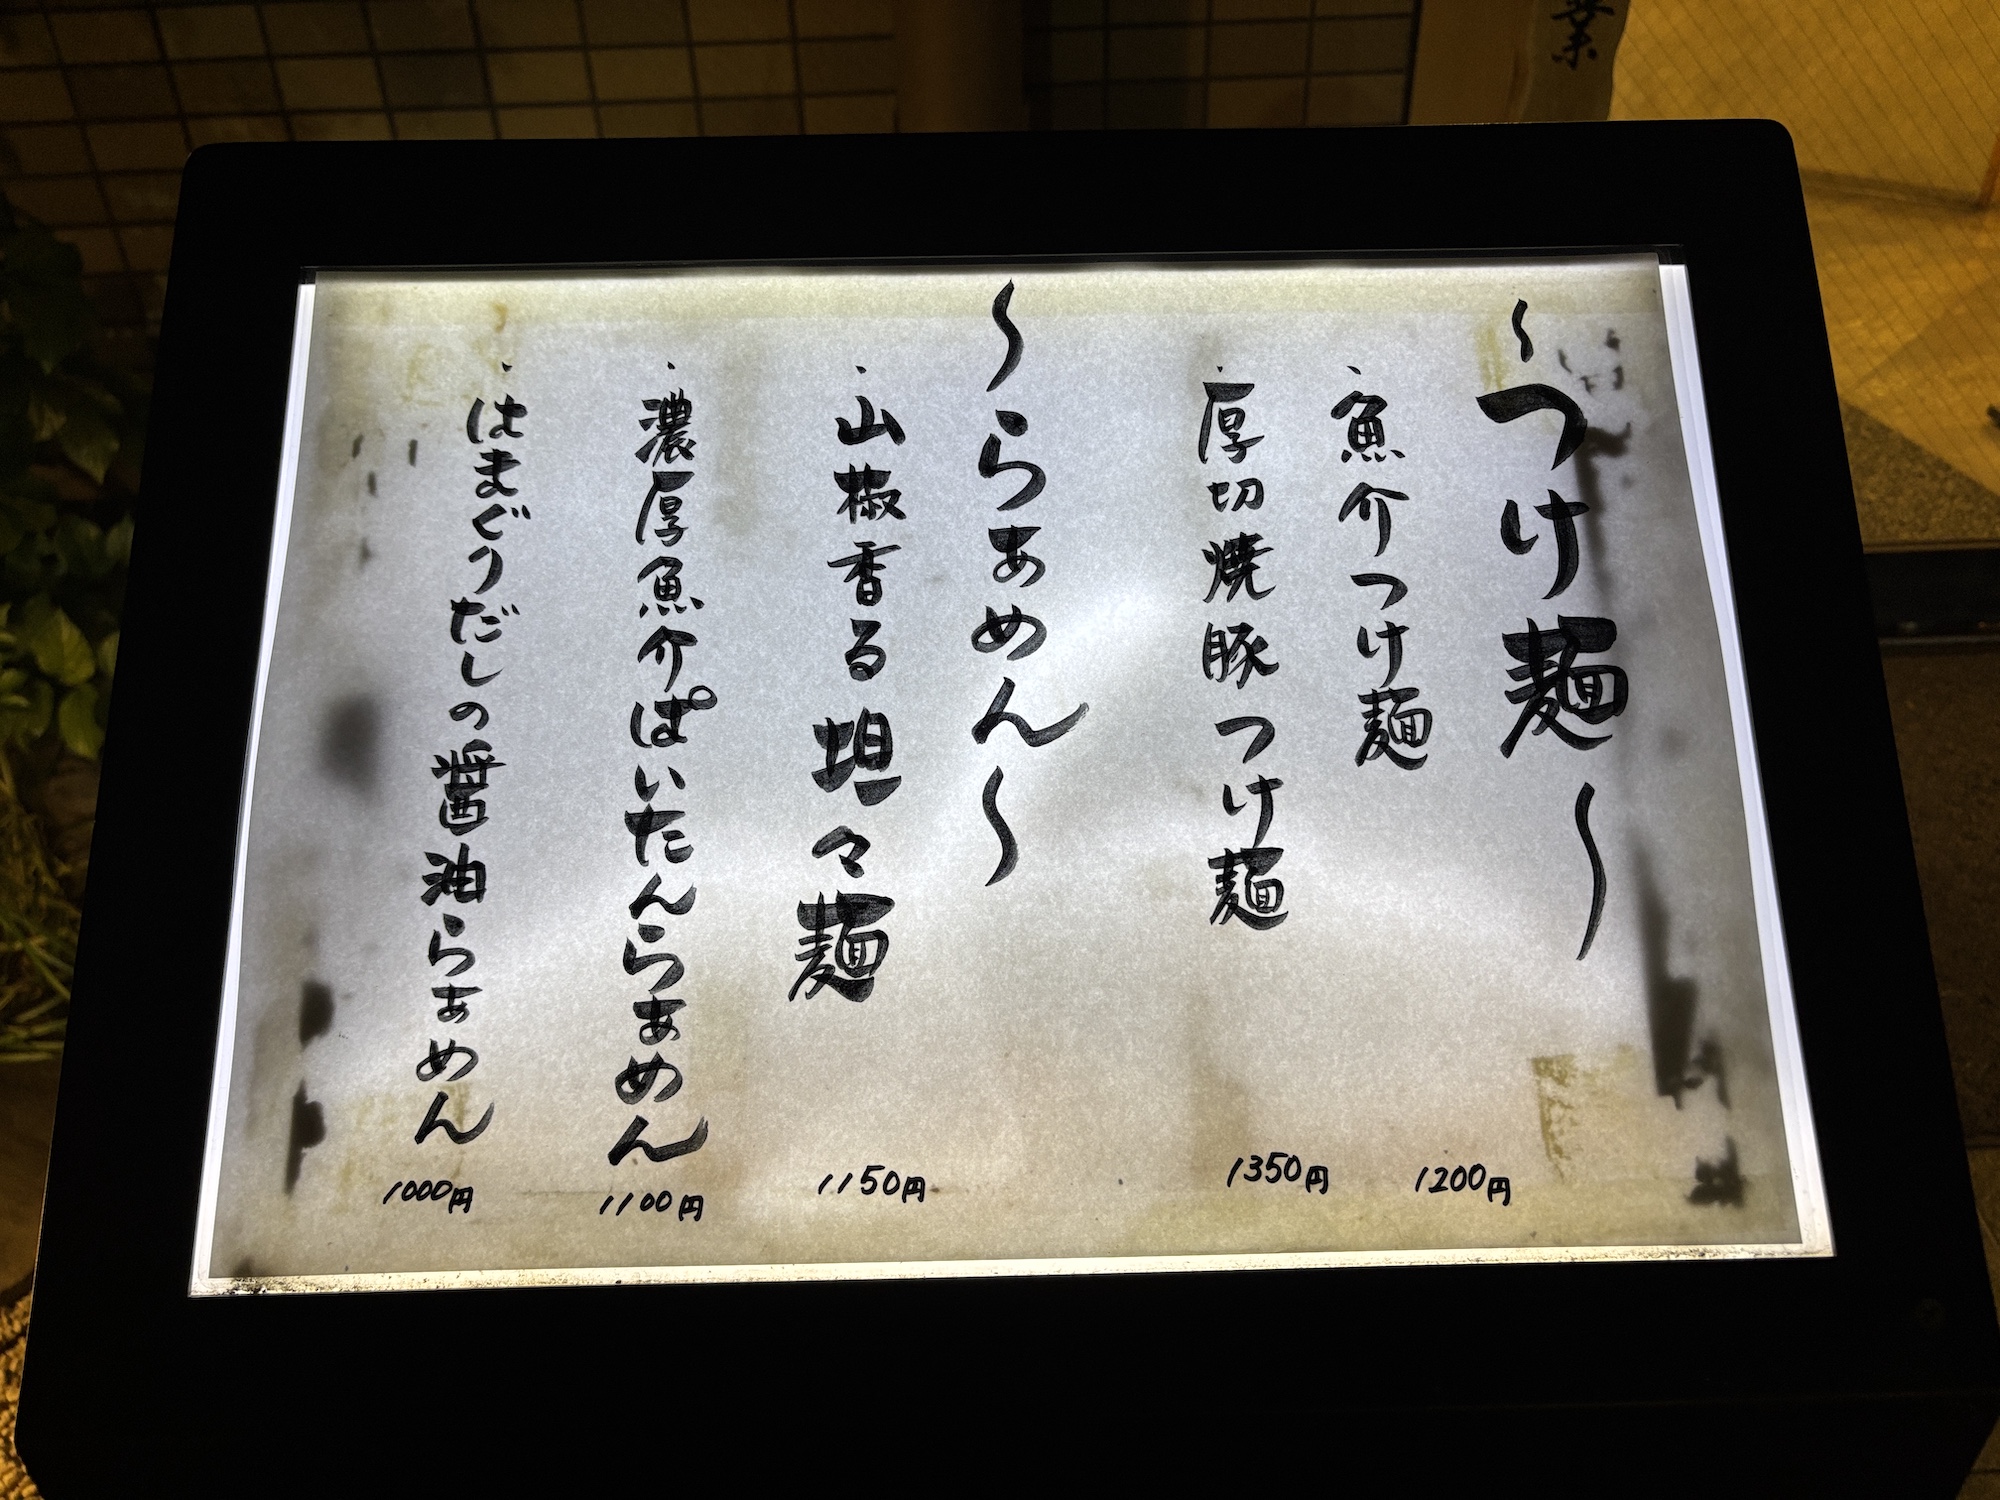 〜つけ麺〜
・魚介つけ麺 1200円
・厚切焼豚つけ麺 1350円
〜らぁめん〜
・山椒香る坦々麺 1150円
・濃厚魚介ぱいたんらぁめん 1100円
・はまぐりだしの醤油らぁめん 1000円
業